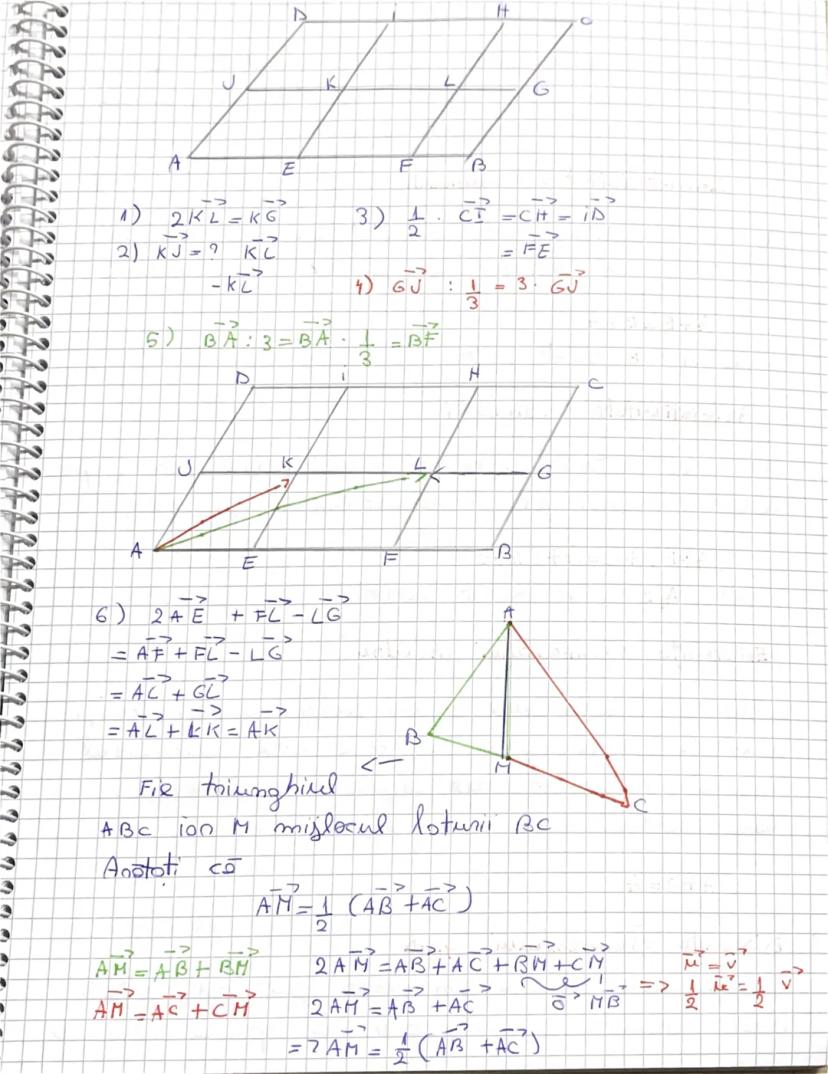 D I H C
J K L G
A E F B
1) 2K⃗L⃗ = K⃗G⃗
2) K⃗J⃗ = ? K⃗L⃗
-K⃗L⃗
3) 1/2 · C⃗I⃗ = C⃗H⃗ = I⃗D⃗
= F⃗E⃗
4) G⃗J⃗ : 1/3 = 3 · G⃗J⃗
5) B⃗A⃗ : 3 = B⃗A⃗ · 1/3 = B⃗F⃗
D I H C
J K L G
A E F B
6) 2A⃗E⃗ + F⃗L⃗ - L⃗G⃗
= A⃗F⃗ + F⃗L⃗ - L⃗G⃗
= A⃗L⃗ + G⃗L⃗
= A⃗L⃗ + L⃗K⃗ = A⃗K⃗
A
B
M
C
Fie triunghiul <-
ABC ion M mijlocul laturii BC
Arătați că
A⃗M⃗ = 1/2 (A⃗B⃗ + A⃗C⃗)
A⃗M⃗ = A⃗B⃗ + B⃗M⃗
A⃗M⃗ = A⃗C⃗ + C⃗M⃗
2A⃗M⃗ = A⃗B⃗ + A⃗C⃗ + B⃗M⃗ + C⃗M⃗
0⃗ M⃗B⃗
2A⃗M⃗ = A⃗B⃗ + A⃗C⃗
=> A⃗M⃗ = 1/2 (A⃗B⃗ + A⃗C⃗)
u⃗ = v⃗
=> 1/2 u⃗ = 1/2 v⃗